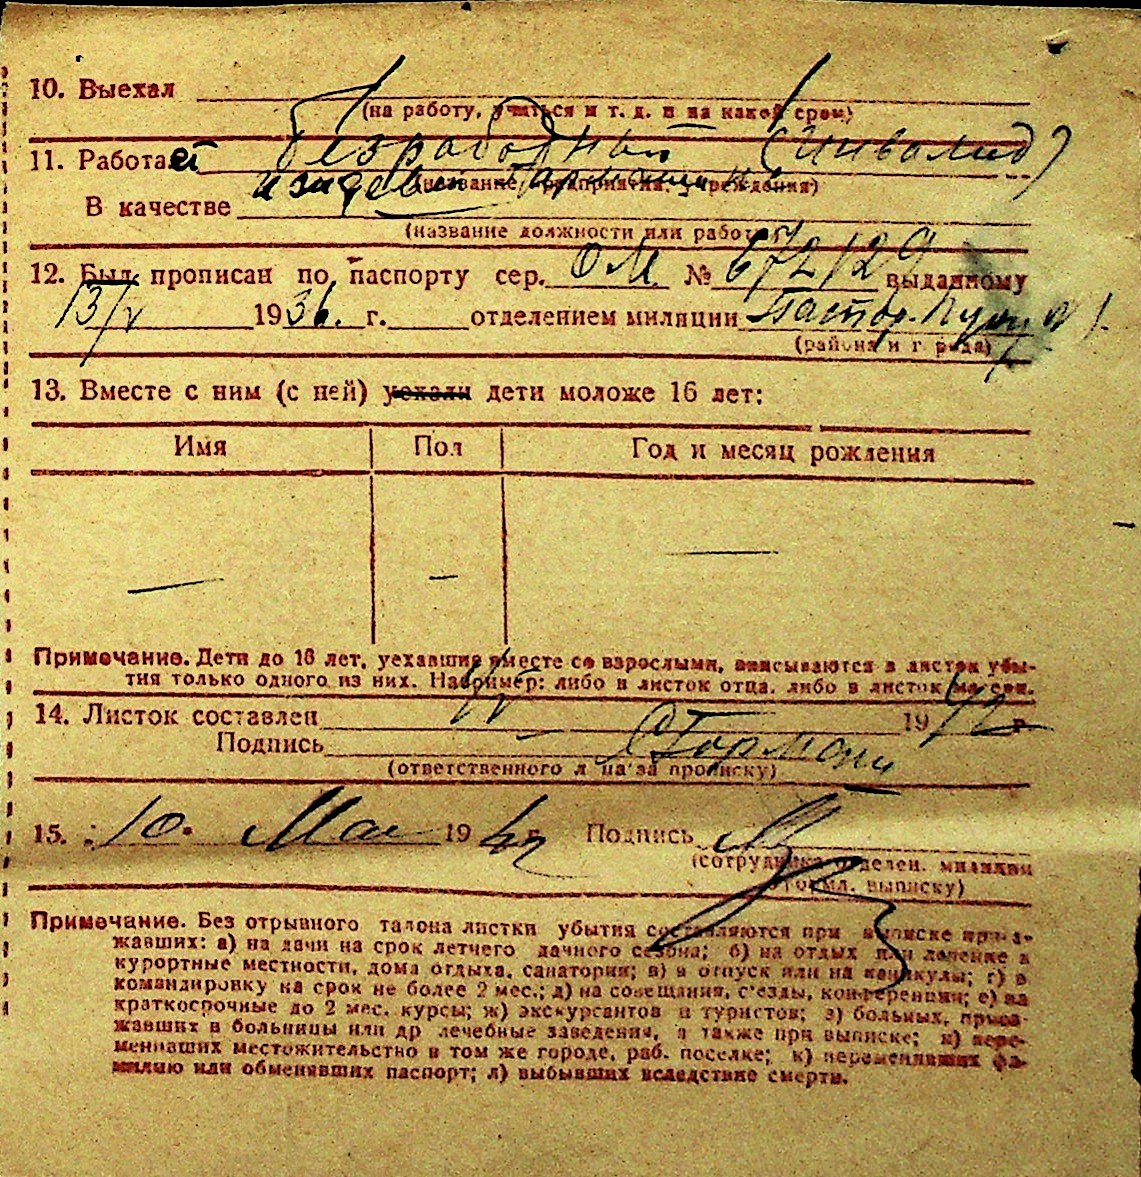 10. Выехал
(на работу, учиться и т. д. и на какой срок)
11. Работает безработный (инвалид)
(название предприятия, учреждения)
В качестве
(название должности или работы)
12. Был прописан по паспорту сер. ОМ № 672129 выданному
13/V 1936 г. отделением милиции
(района и города)
13. Вместе с ним (с ней) уехали дети моложе 16 лет:
Имя Пол Год и месяц рождения
— — —
Примечание. Дети до 16 лет, уехавшие вместе со взрослыми, вписываются в листок убы-
тия только одного из них. Например: либо в листок отца, либо в листок матери.
14. Листок составлен 1942 г.
Подпись
(ответственного лица за прописку)
15. 10. Мая 1942 г. Подпись
(сотрудника отделен. милиции
выписку)
Примечание. Без отрывного талона листки убытия составляются при выписке приез-
жавших: а) на дачи на срок летнего дачного сезона; б) на отдых или лечение в
курортные местности, дома отдыха, санатории; в) в отпуск или на каникулы; г) в
командировку на срок не более 2 мес.; д) на совещания, с'езды, конференции; е) на
краткосрочные до 2 мес. курсы; ж) экскурсантов и туристов; з) больных, приез-
жавших в больницы или др лечебные заведения, а также при выписке; и) пере-
менивших местожительство в том же городе, раб. поселке; к) переменивших фа-
милию или обменявших паспорт; л) выбывших вследствие смерти.